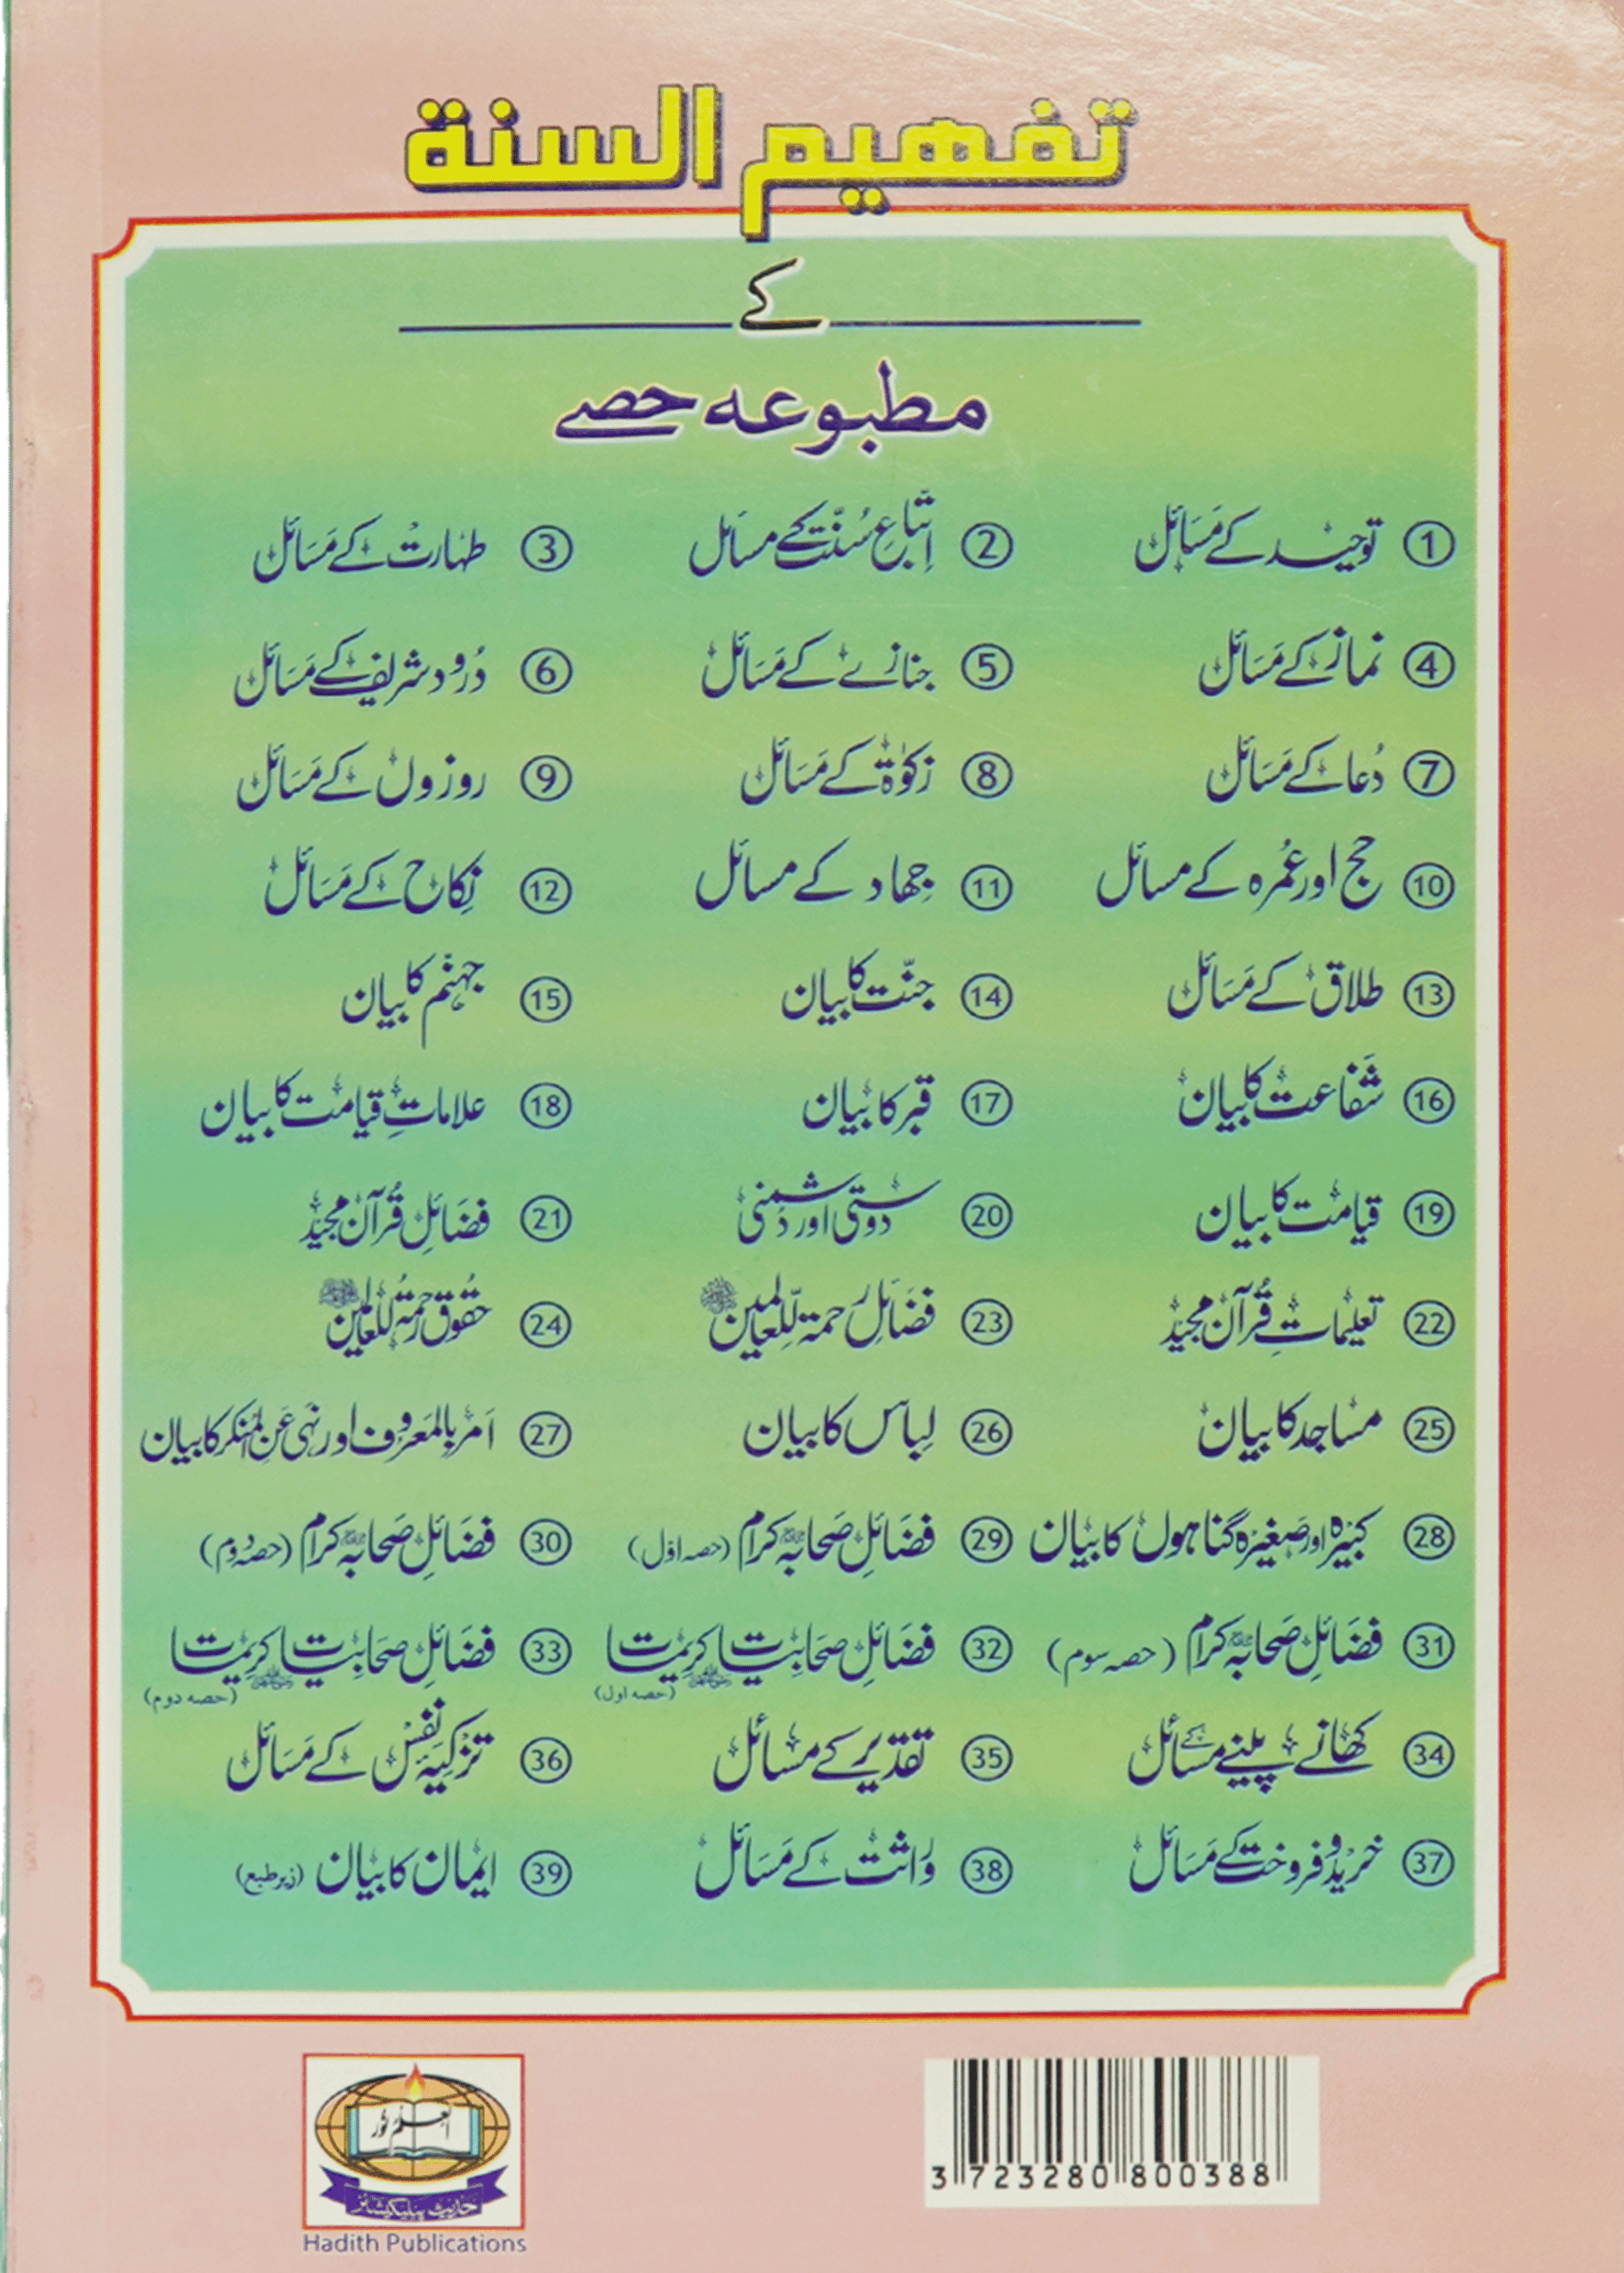 تفہیم السنة
کے
مطبوعہ حصے
① توحید کے مسائل ② اتباعِ سنت کے مسائل ③ طہارت کے مسائل
④ نماز کے مسائل ⑤ جنازے کے مسائل ⑥ درود شریف کے مسائل
⑦ دُعا کے مسائل ⑧ زکوٰۃ کے مسائل ⑨ روزوں کے مسائل
⑩ حج اور عُمرہ کے مسائل ⑪ جہاد کے مسائل ⑫ نکاح کے مسائل
⑬ طلاق کے مسائل ⑭ جنّت کا بیان ⑮ جہنم کا بیان
⑯ شفاعت کا بیان ⑰ قبر کا بیان ⑱ علاماتِ قیامت کا بیان
⑲ قیامت کا بیان ⑳ دوستی اور دشمنی ㉑ فضائلِ قرآن مجید
㉒ تعلیماتِ قرآن مجید ㉓ فضائلِ رحمۃ للعالمین ﷺ ㉔ حقوق رحمۃ للعالمین ﷺ
㉕ مساجد کا بیان ㉖ لباس کا بیان ㉗ امر بالمعروف اور نہی عن المنکر کا بیان
㉘ کبیرہ اور صغیرہ گناہوں کا بیان ㉙ فضائلِ صحابہ کرام (حصہ اوّل) ㉚ فضائلِ صحابہ کرام (حصہ دوم)
㉛ فضائلِ صحابہ کرام (حصہ سوم) ㉜ فضائلِ صحابیات کریمات (حصہ اول) ㉝ فضائلِ صحابیات کریمات (حصہ دوم)
㉞ کھانے پینے کے مسائل ㉟ تقدیر کے مسائل ㊱ تزکیہ نفس کے مسائل
㊲ خرید و فروخت کے مسائل ㊳ وراثت کے مسائل ㊴ ایمان کا بیان (زیر طبع)
العلم نور
حدیث پبلیکیشنز
Hadith Publications
3 723280 800388